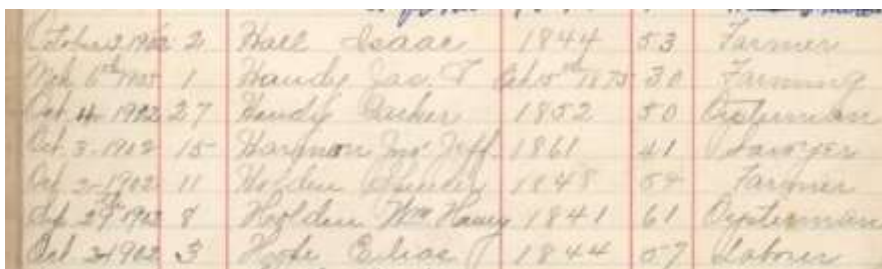 October 2 1902 2 Hall Isaac 1844 53 Farmer
Mch 6th 1905 1 Handy Jas. T Oct. 5th 1875 30 Farming
Oct 4 - 1902 27 Handy Parker 1852 50 Oysterman
Oct. 3 - 1902 15 Harmon Jno Jeff. 1861 41 Lawyer
Oct 2 - 1902 11 Holden 1848 54 Farmer
Sep 29th 1902 8 Holden Wm Haney 1841 61 Oysterman
Oct 2 - 1902 3 Hope Elias 1844 57 Laborer